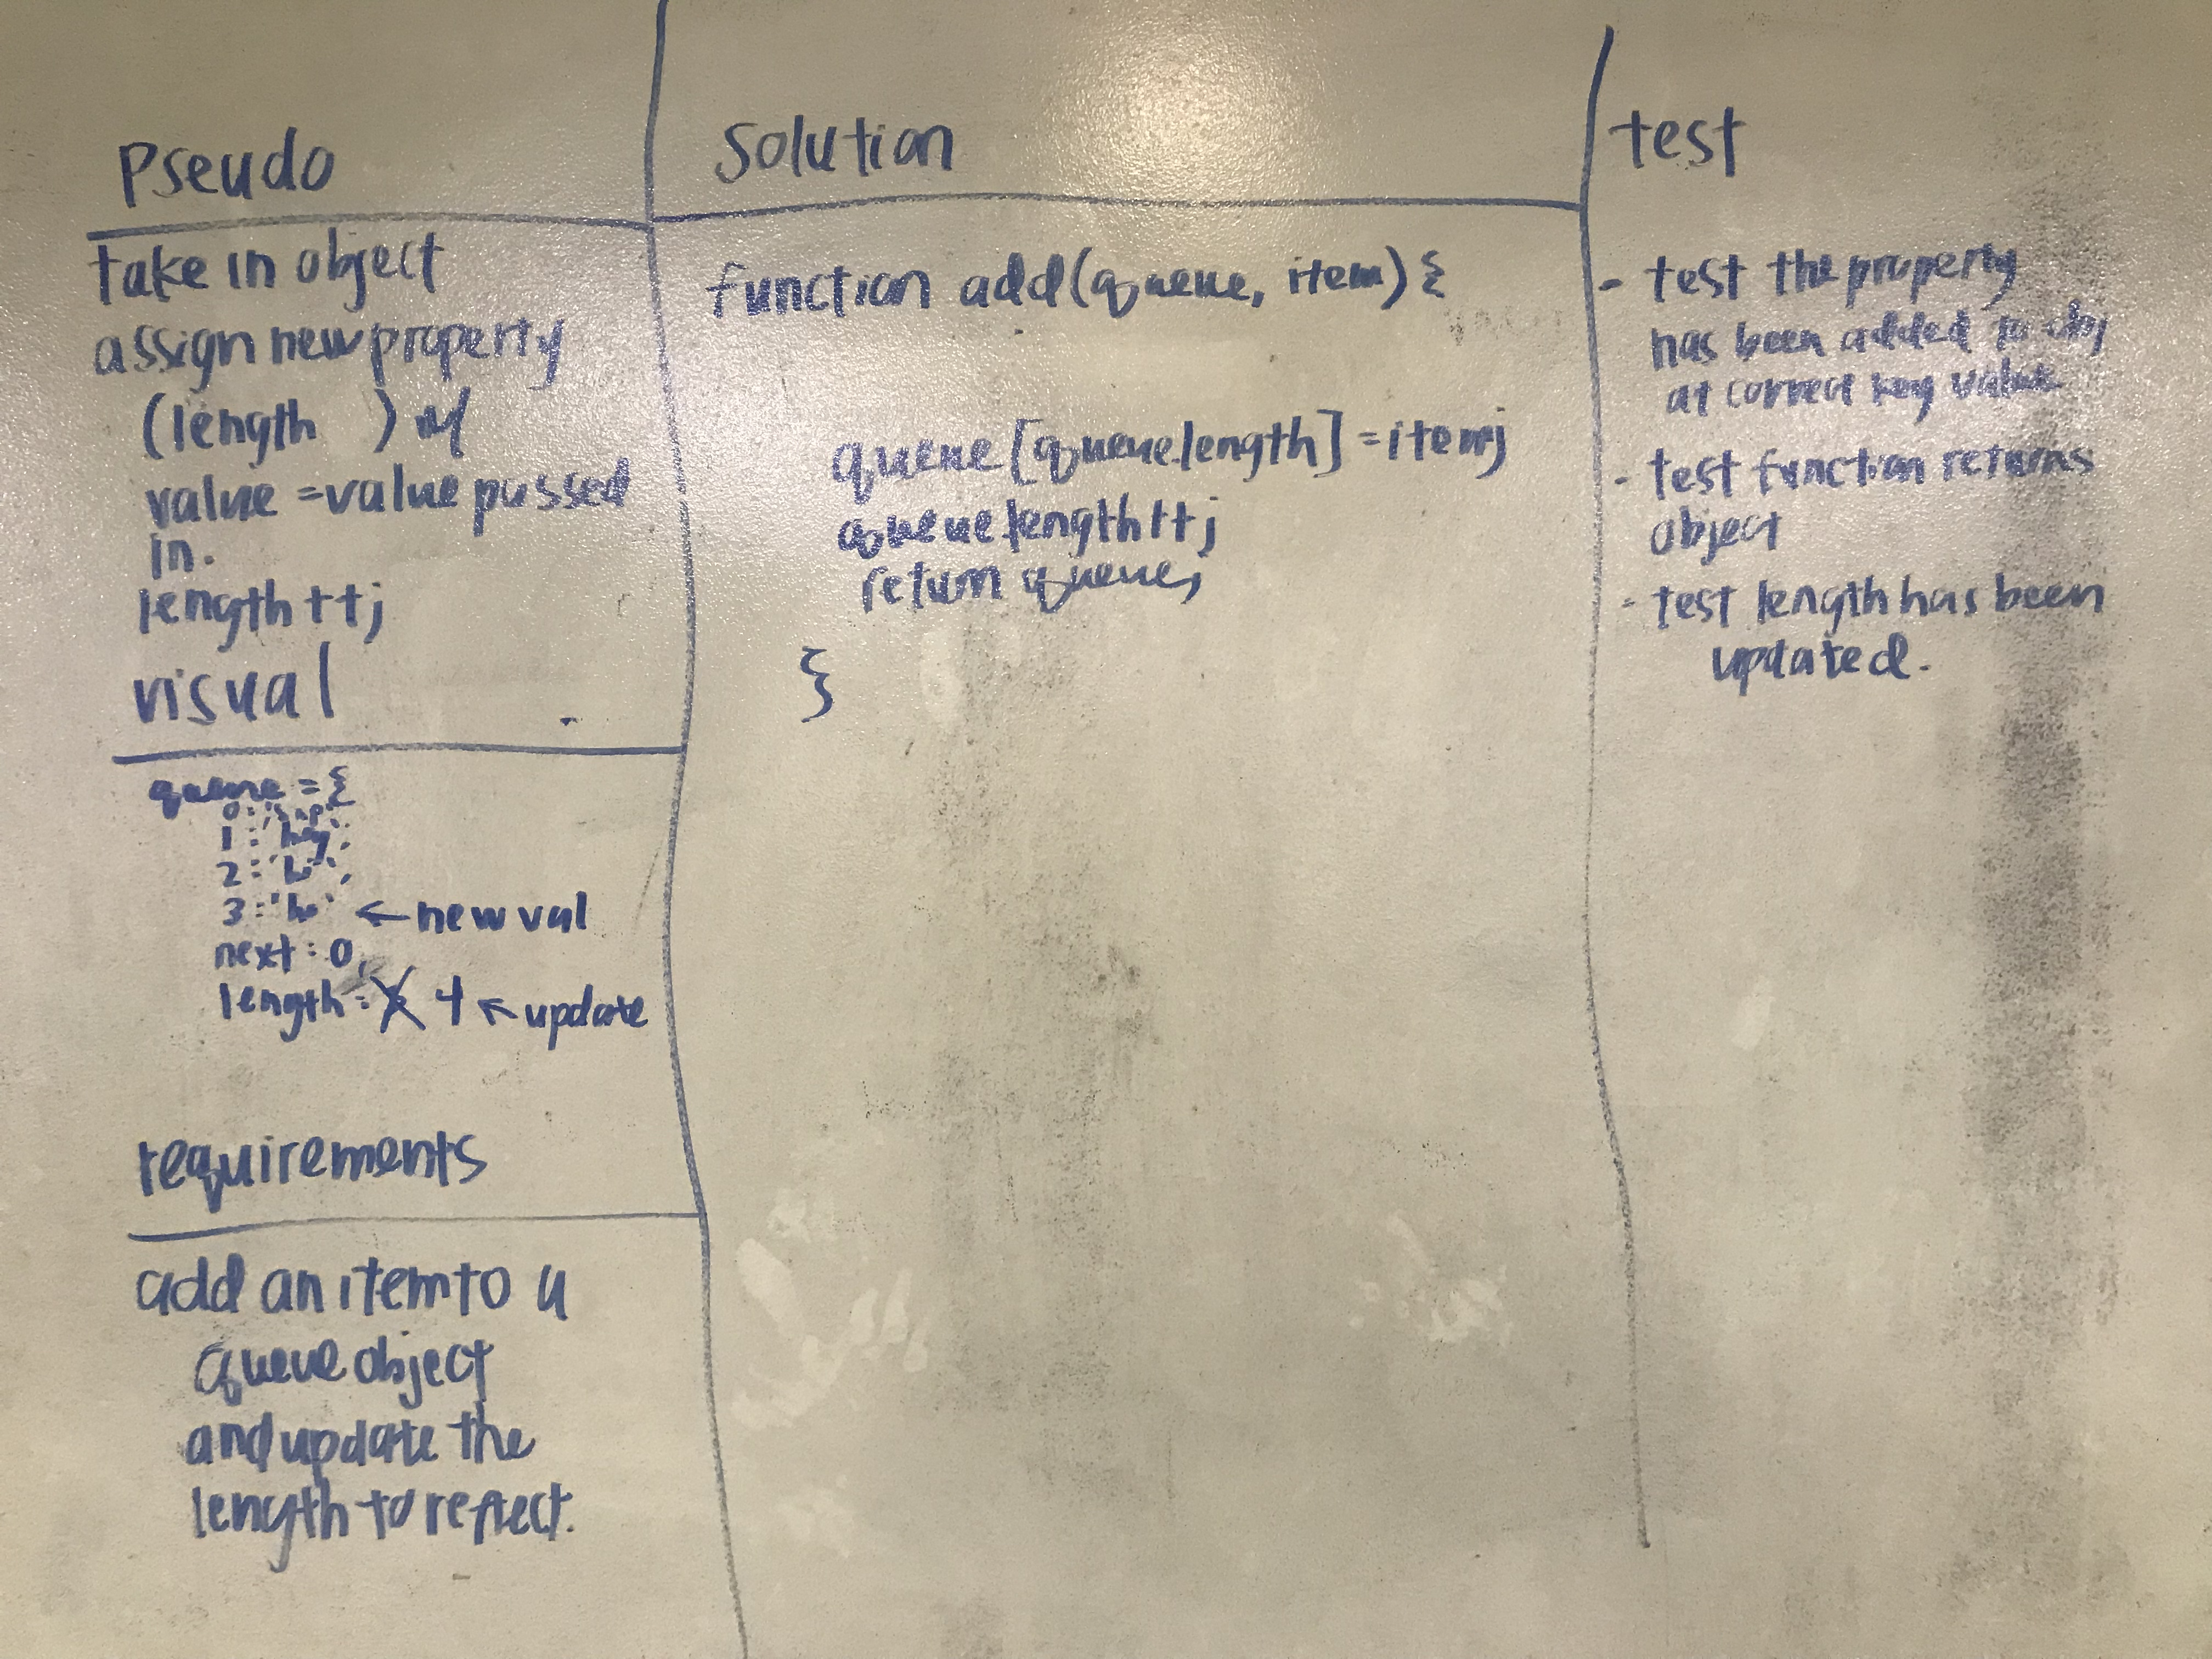 pseudo
take in object
assign new property
(length ) w/
value = value passed
in.
length++;
visual
queue = {
0: 'sup'
1: 'hey',
2: 'hi',
3: 'ho' ← new val
next: 0,
length: 4 ← update
requirements
add an item to a
queue object
and update the
length to reflect.
solution
function add(queue, item) {
queue[queue.length] = item;
queue.length++;
return queue;
}
test
- test the property
has been added to obj
at correct key value
- test function returns
object
- test length has been
updated.